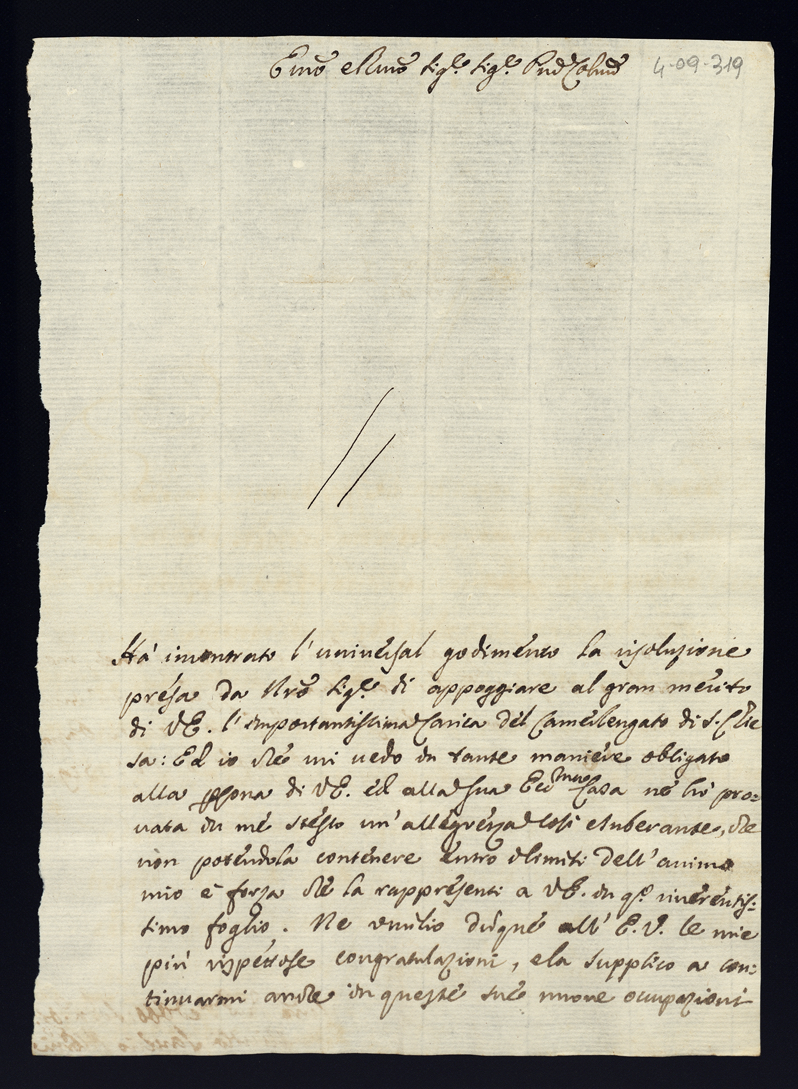 Emo e Rmo Sigre Sigre Pnd Colmo
4-09-319
Ha' incontrato l'universal godimento la risoluzione
presa da Nro Sigre di appoggiare al gran merito
di VE. l'importantissima Carica del Camerlengato di S. Chie
sa: Ed io che mi vedo in tante maniere obligato
alla psona di VE. ed alla sua Eccma Casa ne hò pro=
vata in me stesso un'allegrezza così esuberante, che
non potendola contenere entro i limiti dell'animo
mio è forza che la rappresenti a VE. in qto riverentis=
simo foglio. Ne umilio dunque all'E.V. le mie
più rispettose congratulazioni, e la supplico a con=
tinuarmi anche in queste sue nuove occupazioni